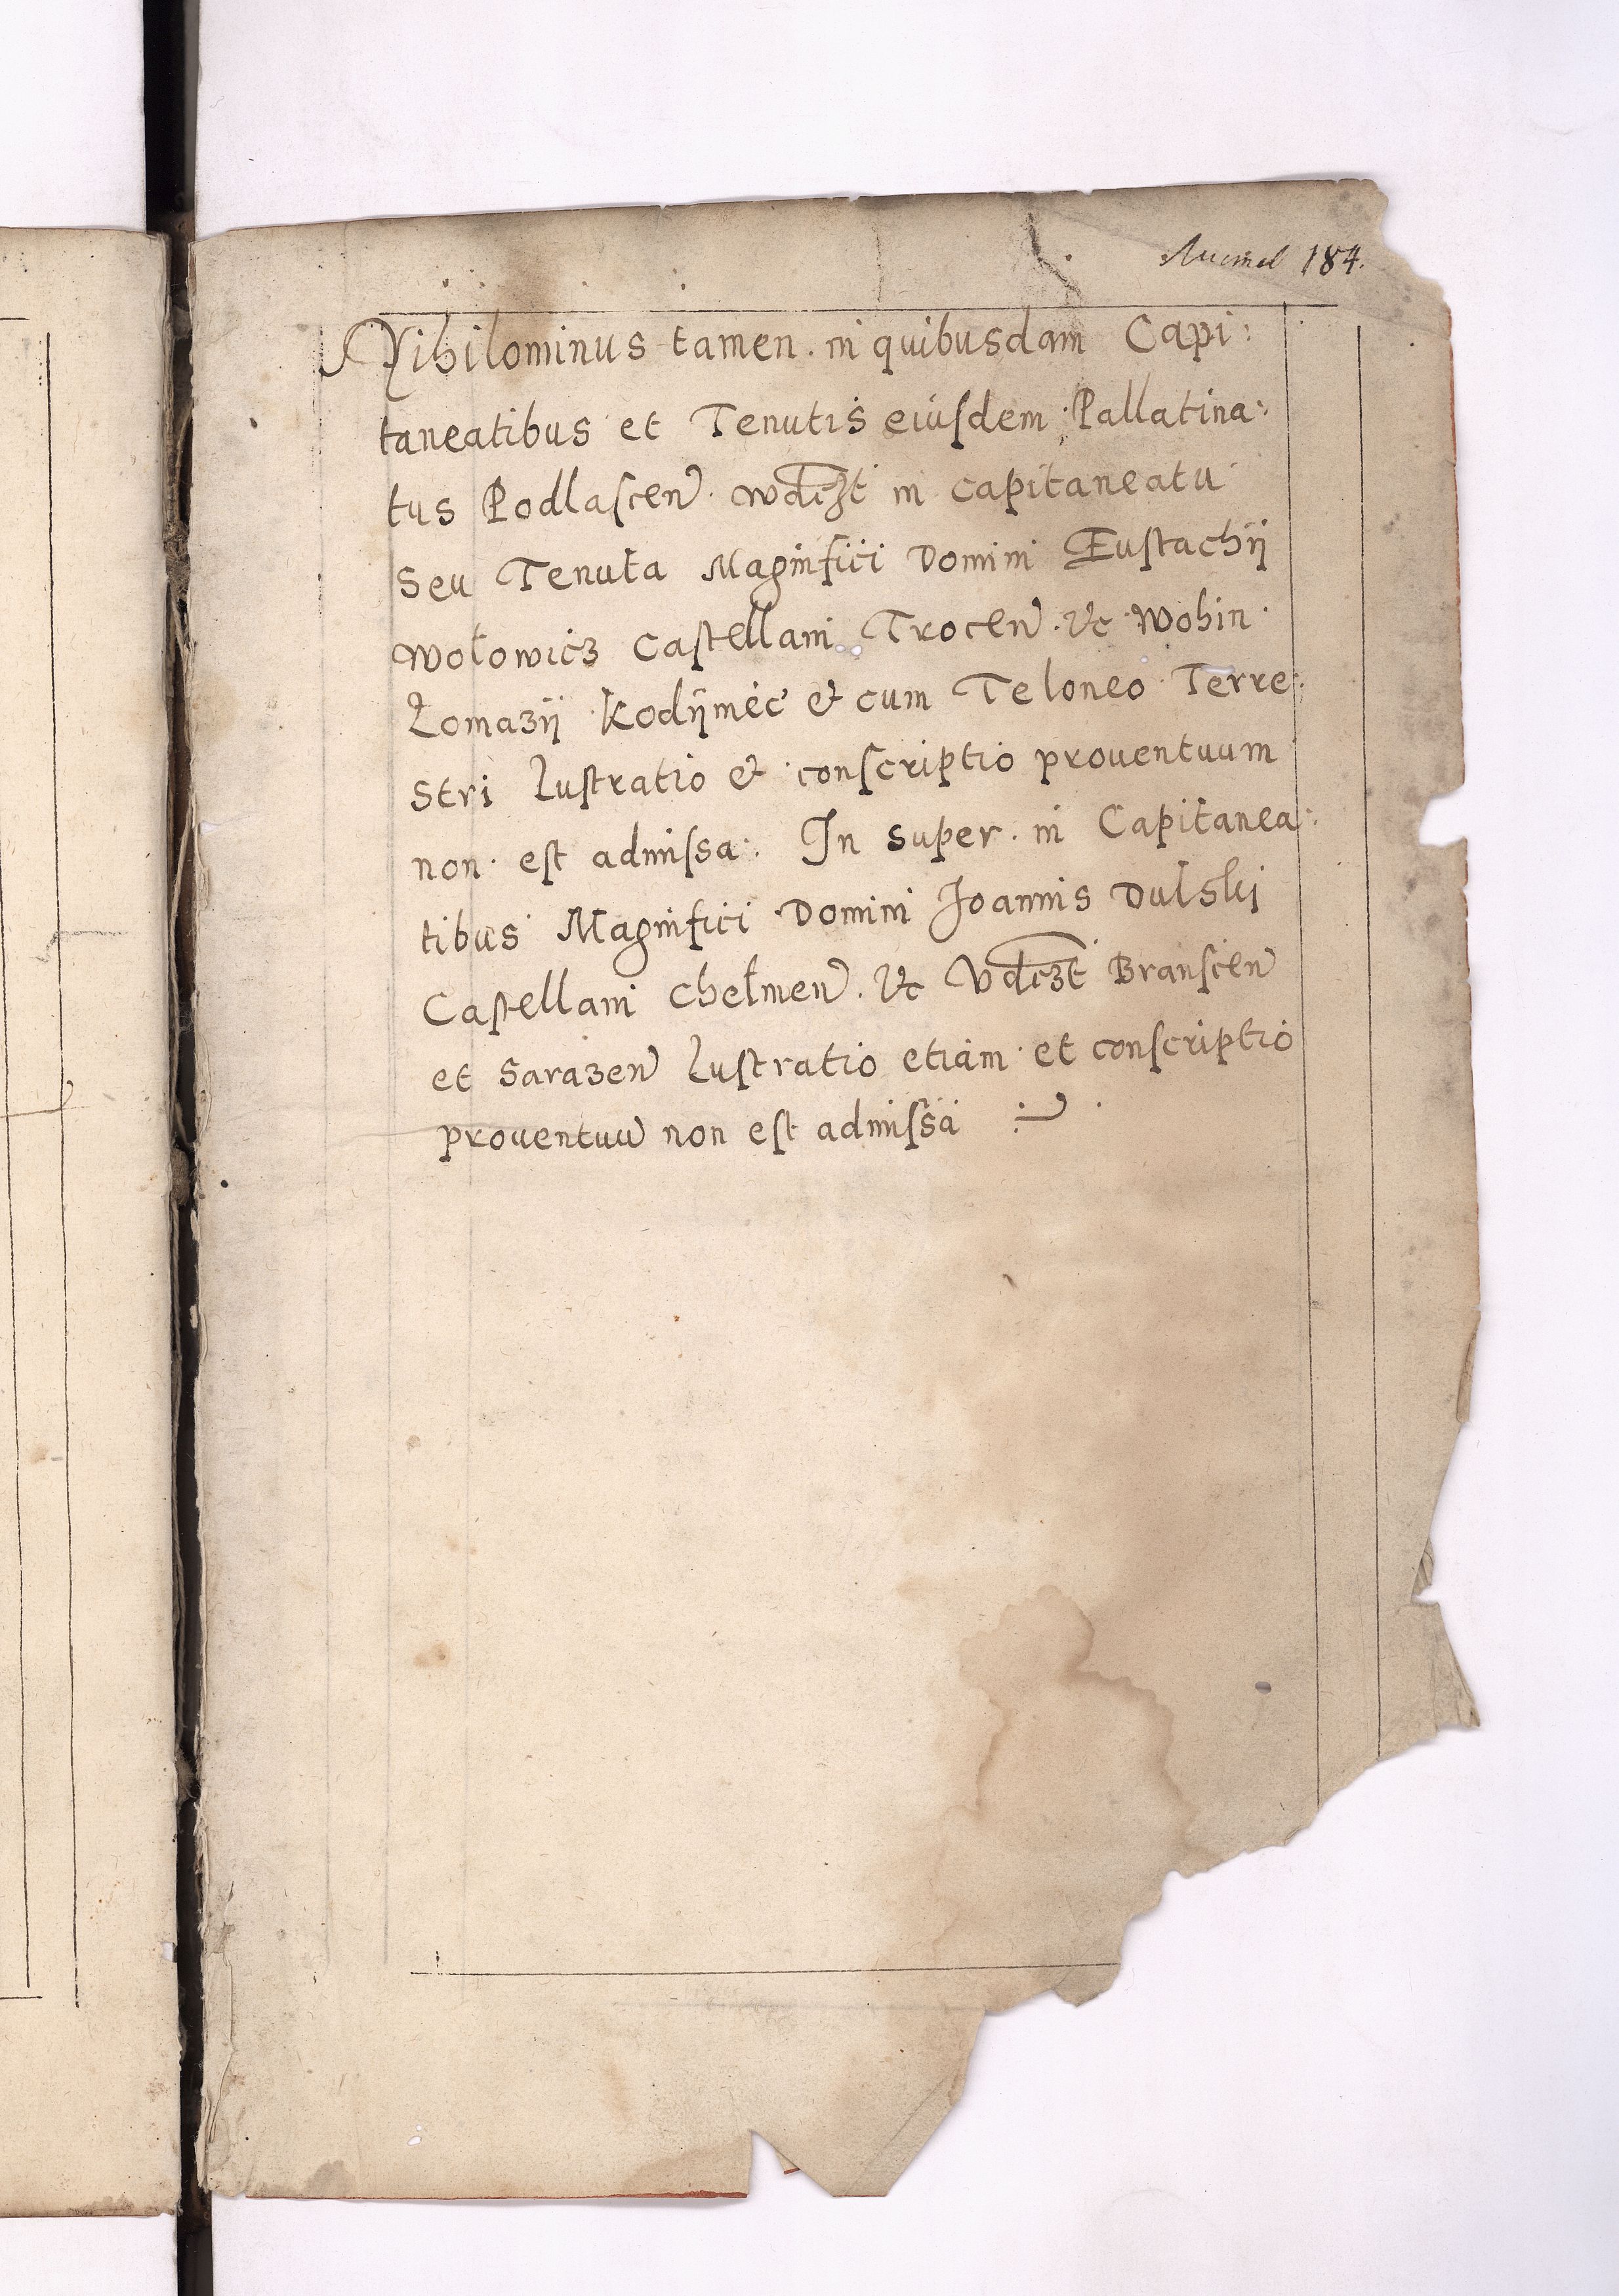 Листъ 184.
Nihilominus tamen. in quibusdam Capi:
taneatibus et Tenutis eiuſdem Pallatina:
tus Podlaſcen. wdczt in capitaneatu
Seu Tenuta Magnifici Domini Euſtachÿ
Wołowicz Caſtellani Trocen. &c Wohin
Łomazÿ Kodÿmec & cum Teloneo Terre:
Stri Luſtratio & conſcriptio prouentuum
non eſt admiſsa: In super. in Capitanea:
tibus Magnifici Domini Joannis Dulski
Caſtellani Chełmen. &c Vdczt Branſcen
et Sarazen Luſtratio etiam et conſcriptio
prouentuu non eſt admiſsa